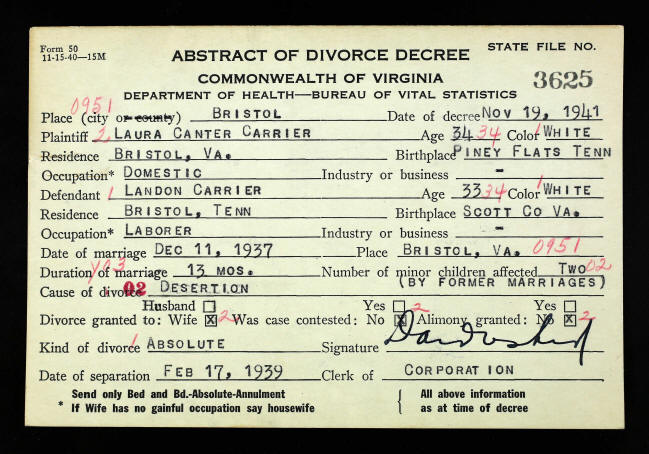 Form 50
11-15-40—15M
ABSTRACT OF DIVORCE DECREE
STATE FILE NO.
COMMONWEALTH OF VIRGINIA
3625
DEPARTMENT OF HEALTH—BUREAU OF VITAL STATISTICS
0951
Place (city or county) BRISTOL Date of decree NOV 19, 1941
Plaintiff 2 LAURA CANTER CARRIER Age 34 34 Color 1 WHITE
Residence BRISTOL, VA. Birthplace PINEY FLATS TENN
Occupation* DOMESTIC Industry or business -
Defendant 1 LANDON CARRIER Age 33 34 Color 1 WHITE
Residence BRISTOL, TENN Birthplace SCOTT CO VA.
Occupation* LABORER Industry or business -
Date of marriage DEC 11, 1937 Place BRISTOL, VA. 0951
Duration of marriage 13 MOS. Number of minor children affected TWO 02
Cause of divorce 02 DESERTION (BY FORMER MARRIAGES)
Husband ☐ Yes ☐ Yes ☐
Divorce granted to: Wife ☒ 2 Was case contested: No ☒ 2 Alimony granted: No ☒ 2
Kind of divorce 1 ABSOLUTE Signature
Date of separation FEB 17, 1939 Clerk of CORPORATION
Send only Bed and Bd.-Absolute-Annulment
* If Wife has no gainful occupation say housewife
{ All above information
as at time of decree